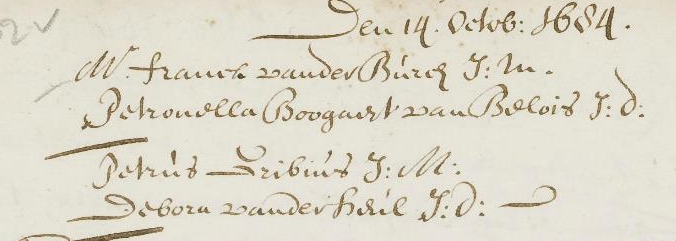 Den 14. Octob: 1684.
Mr. franck vander Burch J: m.
Petronella Boogaert van Belois J: d:
Petrus Gribius J: M:
Debora vander heul J: d: